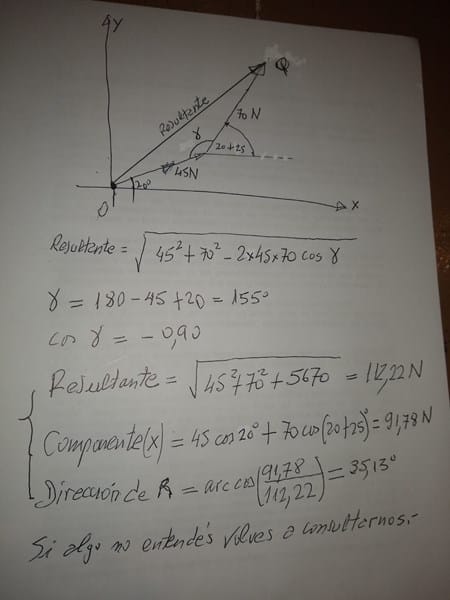 Y
Q
Resultante
70 N
γ
20+25
45N
20°
O
X
Resultante = √45² + 70² - 2x45x70 cos γ
γ = 180 - 45 + 20 = 155°
cos γ = - 0,90
Resultante = √45²+70²+5670 = 112,22 N
Componente(x) = 45 cos 20° + 70 cos(20+25)° = 91,78 N
Dirección de R = arc cos(91,78/112,22) = 35,13°
Si algo no entendés volves a consultarnos.-